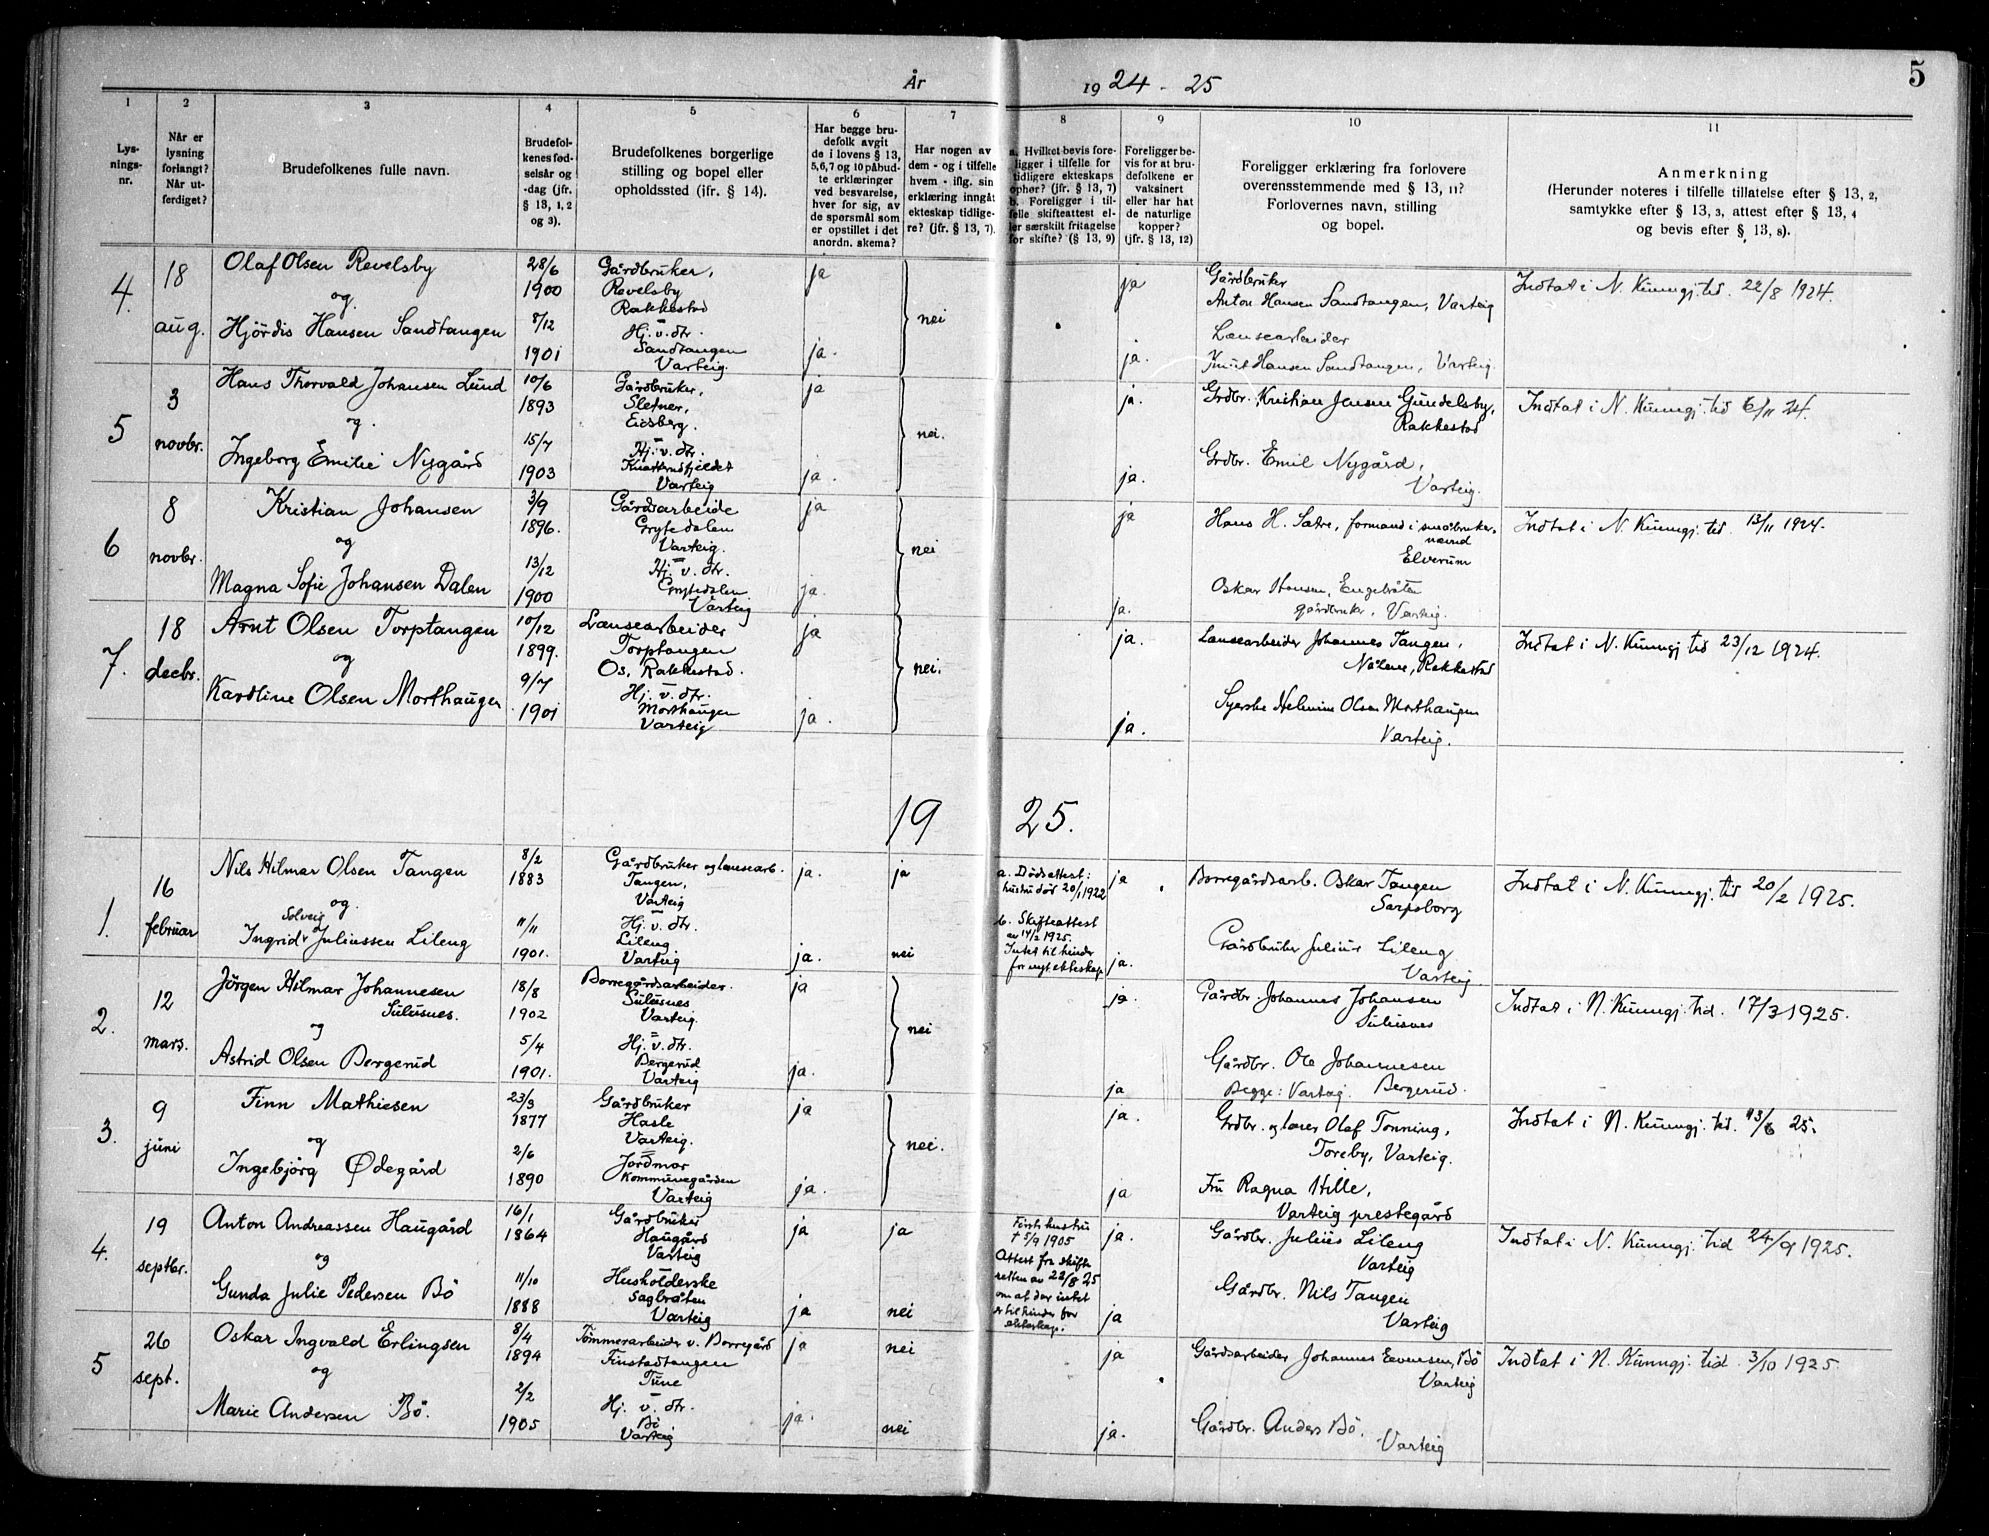 År 1924 - 25
5
1
Lys-
nings-
nr.
2
Når er
lysning
forlangt?
Når ut-
ferdiget?
3
Brudefolkenes fulle navn.
4
Brudefol-
kenes fød-
selsår og
-dag (jfr.
§ 13, 1, 2
og 3).
5
Brudefolkenes borgerlige
stilling og bopel eller
opholdssted (jfr. § 14).
6
Har begge bru-
defolk avgit
de i lovens § 13,
5,6,7 og 10 påbud-
te erklæringer
ved besvarelse,
hver for sig, av
de spørsmål som
er opstillet i det
anordn. skema?
7
Har nogen av
dem - og i tilfelle
hvem - iflg. sin
erklæring inngått
ekteskap tidlige-
re? (jfr. § 13, 7).
8
a. Hvilket bevis fore-
ligger i tilfelle for
tidligere ekteskaps
ophør? (jfr. § 13, 7)
b. Foreligger i til-
felle skifteattest el-
ler særskilt fritagelse
for skifte? (§ 13, 9)
9
Foreligger be-
vis for at bru-
defolkene er
vaksinert
eller har hat
de naturlige
kopper?
(jfr. § 13, 12)
10
Foreligger erklæring fra forlovere
overensstemmende med § 13, 11?
Forlovernes navn, stilling
og bopel.
11
Anmerkning
(Herunder noteres i tilfelle tillatelse efter § 13, 2,
samtykke efter § 13, 3, attest efter § 13, 4
og bevis efter § 13, 8).
4.
18
aug.
Olaf Olsen Revelsby
og
Hjördis Hansen Sandtangen
28/6
1900
8/12
1901
Gårdbruker,
Revelsby
Rakkestad
Hj. v. dtr.
Sandtangen
Varteig.
ja
ja.
nei
ja
ja.
Gårdbruker
Anton Hansen Sandtangen, Varteig
Lænsearbeider
Knut Hansen Sandtangen, Varteig.
Indtat i N. Kunngj. tid. 22/8 1924.
5
3
novbr.
Hans Thorvald Johansen Lund
og.
Ingeborg Emilie Nygård
10/6
1893
15/7
1903
Gårdbruker,
Sletner,
Eidsberg.
Hj. v. dtr.
Varteig
ja
ja.
nei.
ja.
ja.
Grdbr. Kristian Jensen Gundelsby,
Rakkestad
Grdbr. Emil Nygård,
Varteig.
Indtat i N. Kunngj. tid 6/11 24.
6
8
novbr.
Kristian Johansen
og
Magna Sofie Johansen Dalen
3/9
1896.
13/12
1900
Gårdsarbeide
Grytedalen
Varteig.
Hj. v. dtr.
Grytedalen
Varteig
ja
ja.
nei
ja
ja.
Hans H. Sætre, formand i småbruker-
nævnd
Elverum
Oskar Hansen, Engebråten
gårdbruker, Varteig.
Indtat i N. Kunngj. tid. 13/11 1924.
7.
18
decbr.
Arnt Olsen Torptangen
og
Karoline Olsen Morthaugen
10/12
1899.
9/7
1901
Lænsearbeider
Torptangen
Os, Rakkestad.
Hj. v. dtr.
Morthaugen
Varteig
ja
ja.
nei.
ja.
ja.
Lænsearbeider Johannes Tangen,
Rakkestad
Syerske Helmine Olsen Morthaugen
Varteig.
Indtat i N. Kunngj tid 23/12 1924.
19 25.
1.
16
februar
Nils Hilmar Olsen Tangen
og.
Solveig
Ingrid Juliussen Lileng
8/2
1883
11/11
1901.
Gårdbruker og lænsearb.
Tangen,
Varteig
Hj. v. dtr.
Lileng
Varteig
ja.
ja.
ja
nei
a. Dødsattest:
hustru död 20/1 1922
b. Skifteattest
av 14/2 1925.
Intet til hinder
for nyt ekteskap
ja
ja.
Borregårdsarb. Oskar Tangen
Sarpsborg
Gårdbruker Julius Lileng
Varteig.
Indtat i N. Kunngj. tid 20/2 1925.
2.
12
mars.
Jörgen Hilmar Johannesen
Sulusnes.
og
Astrid Olsen Bergerud
18/8
1902
5/4
1901.
Borregårdsarbeider.
Sulusnes
Varteig.
Hj. v. dtr.
Bergerud
Varteig
ja
ja.
nei
ja.
ja
Gårdbr. Johannes Johansen
Sulusnes
Gårdbr. Ole Johannesen
Begge: Varteig. Bergerud.
Indtat i N. Kunngj. tid. 17/3 1925.
3.
9
juni
Finn Mathiesen
og
Ingebjörg Ødegård
23/3
1877
2/6
1890
Gårdbruker
Hasle
Varteig.
Jordmor
Kommunegården
Varteig
ja
ja.
nei.
ja.
ja
Grdbr. og lærer Olaf Tonning,
Toreby, Varteig.
Fru Ragna Hille,
Varteig prestegård
Indtat i N. Kunngj. tid. 13/6 25.
4.
19
septbr.
Anton Andreassen Haugård
og
Gunda Julie Pedersen Bö
16/1
1864
11/10
1888
Gårdbruker
Haugård
Varteig
Husholderske
Sagbråten
Varteig
ja
ja
ja
nei
Første hustru
† 5/9 1905
Attest fra skifte
retten av 22/8 25
om at der intet
er til hinder for
ekteskap.
ja.
ja
Gårdbr. Julius Lileng
Varteig
Gårdbr. Nils Tangen
Varteig
Indtat i N. Kunngj. tid 24/9 1925.
5
26
sept.
Oskar Ingvald Erlingsen
og
Marie Andersen Bö.
8/4
1894
2/2
1905
Tömmerarbeider v. Borregård
Finstadtangen
Tune
Hj. v. dtr.
Bö
Varteig
ja
ja.
nei
nei
ja
ja.
Gårdsarbeider Johannes Evensen, Bö
Varteig
Gårdbr. Anders Bö.
Varteig
Indtat i N. Kunngj. tid. 3/10 1925.